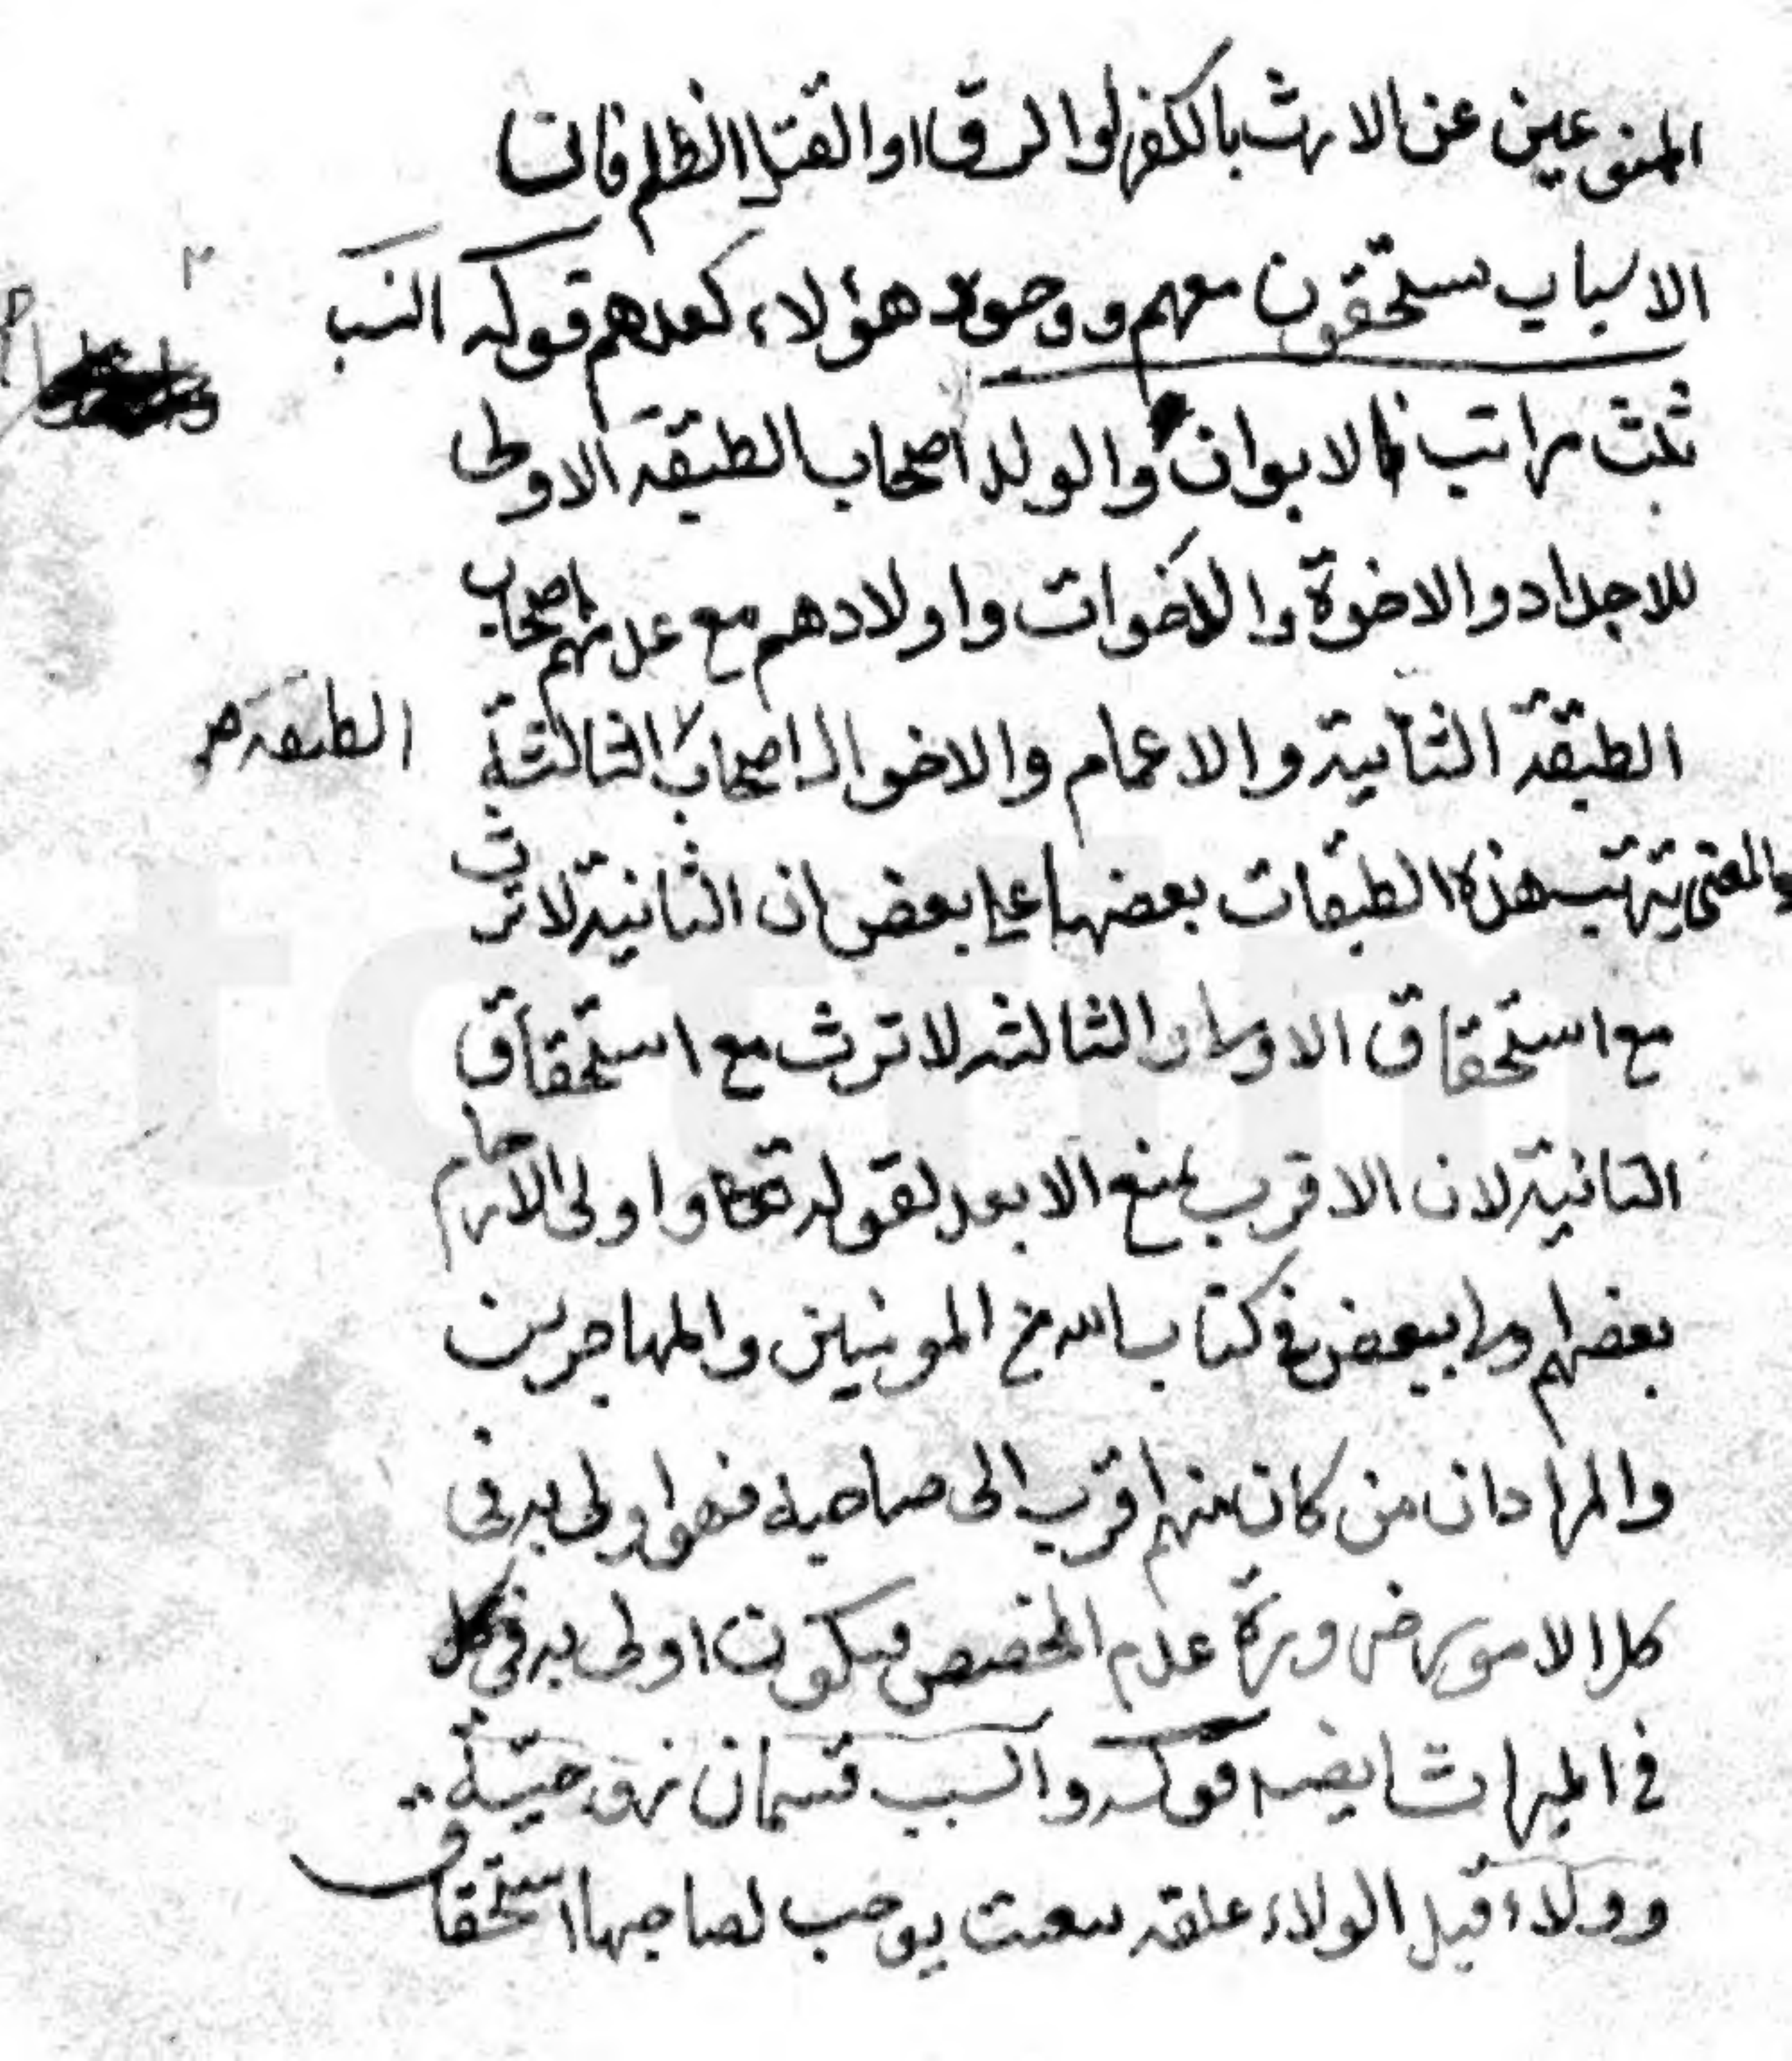 الممنوعين عن الارث بالكفر او الرق او القتل الظلم فان
الاسباب يستحقون معهم ووجود هؤلاء كعدمهم قوله النسب
ثلث مراتب فالابوان والولد اصحاب الطبقة الاولى
للاجداد والاخوة والاخوات واولادهم مع عدمهم اصحاب
الطبقة الثانية والاعمام والاخوال اصحاب الثالثة
الطبقة
والمعنى بترتيب هذه الطبقات بعضها على بعض ان الثانية لا ترث
مع استحقاق الاولى والثالثة لا ترث مع استحقاق
الثانية لان الاقرب يمنع الابعد لقوله تعا واولى الارحام
بعضهم اولى ببعض في كتاب الله من المومنين والمهاجرين
والمراد ان من كان منهم اقرب الى صاحبه فهو اولى به في
كل الامور ضرورة عدم المخصص فيكون اولى به في
في الميراث ايضا قوله والسبب قسمان زوجية
وولاء قيل الولاء علقة يوجب لصاحبها استحقاق